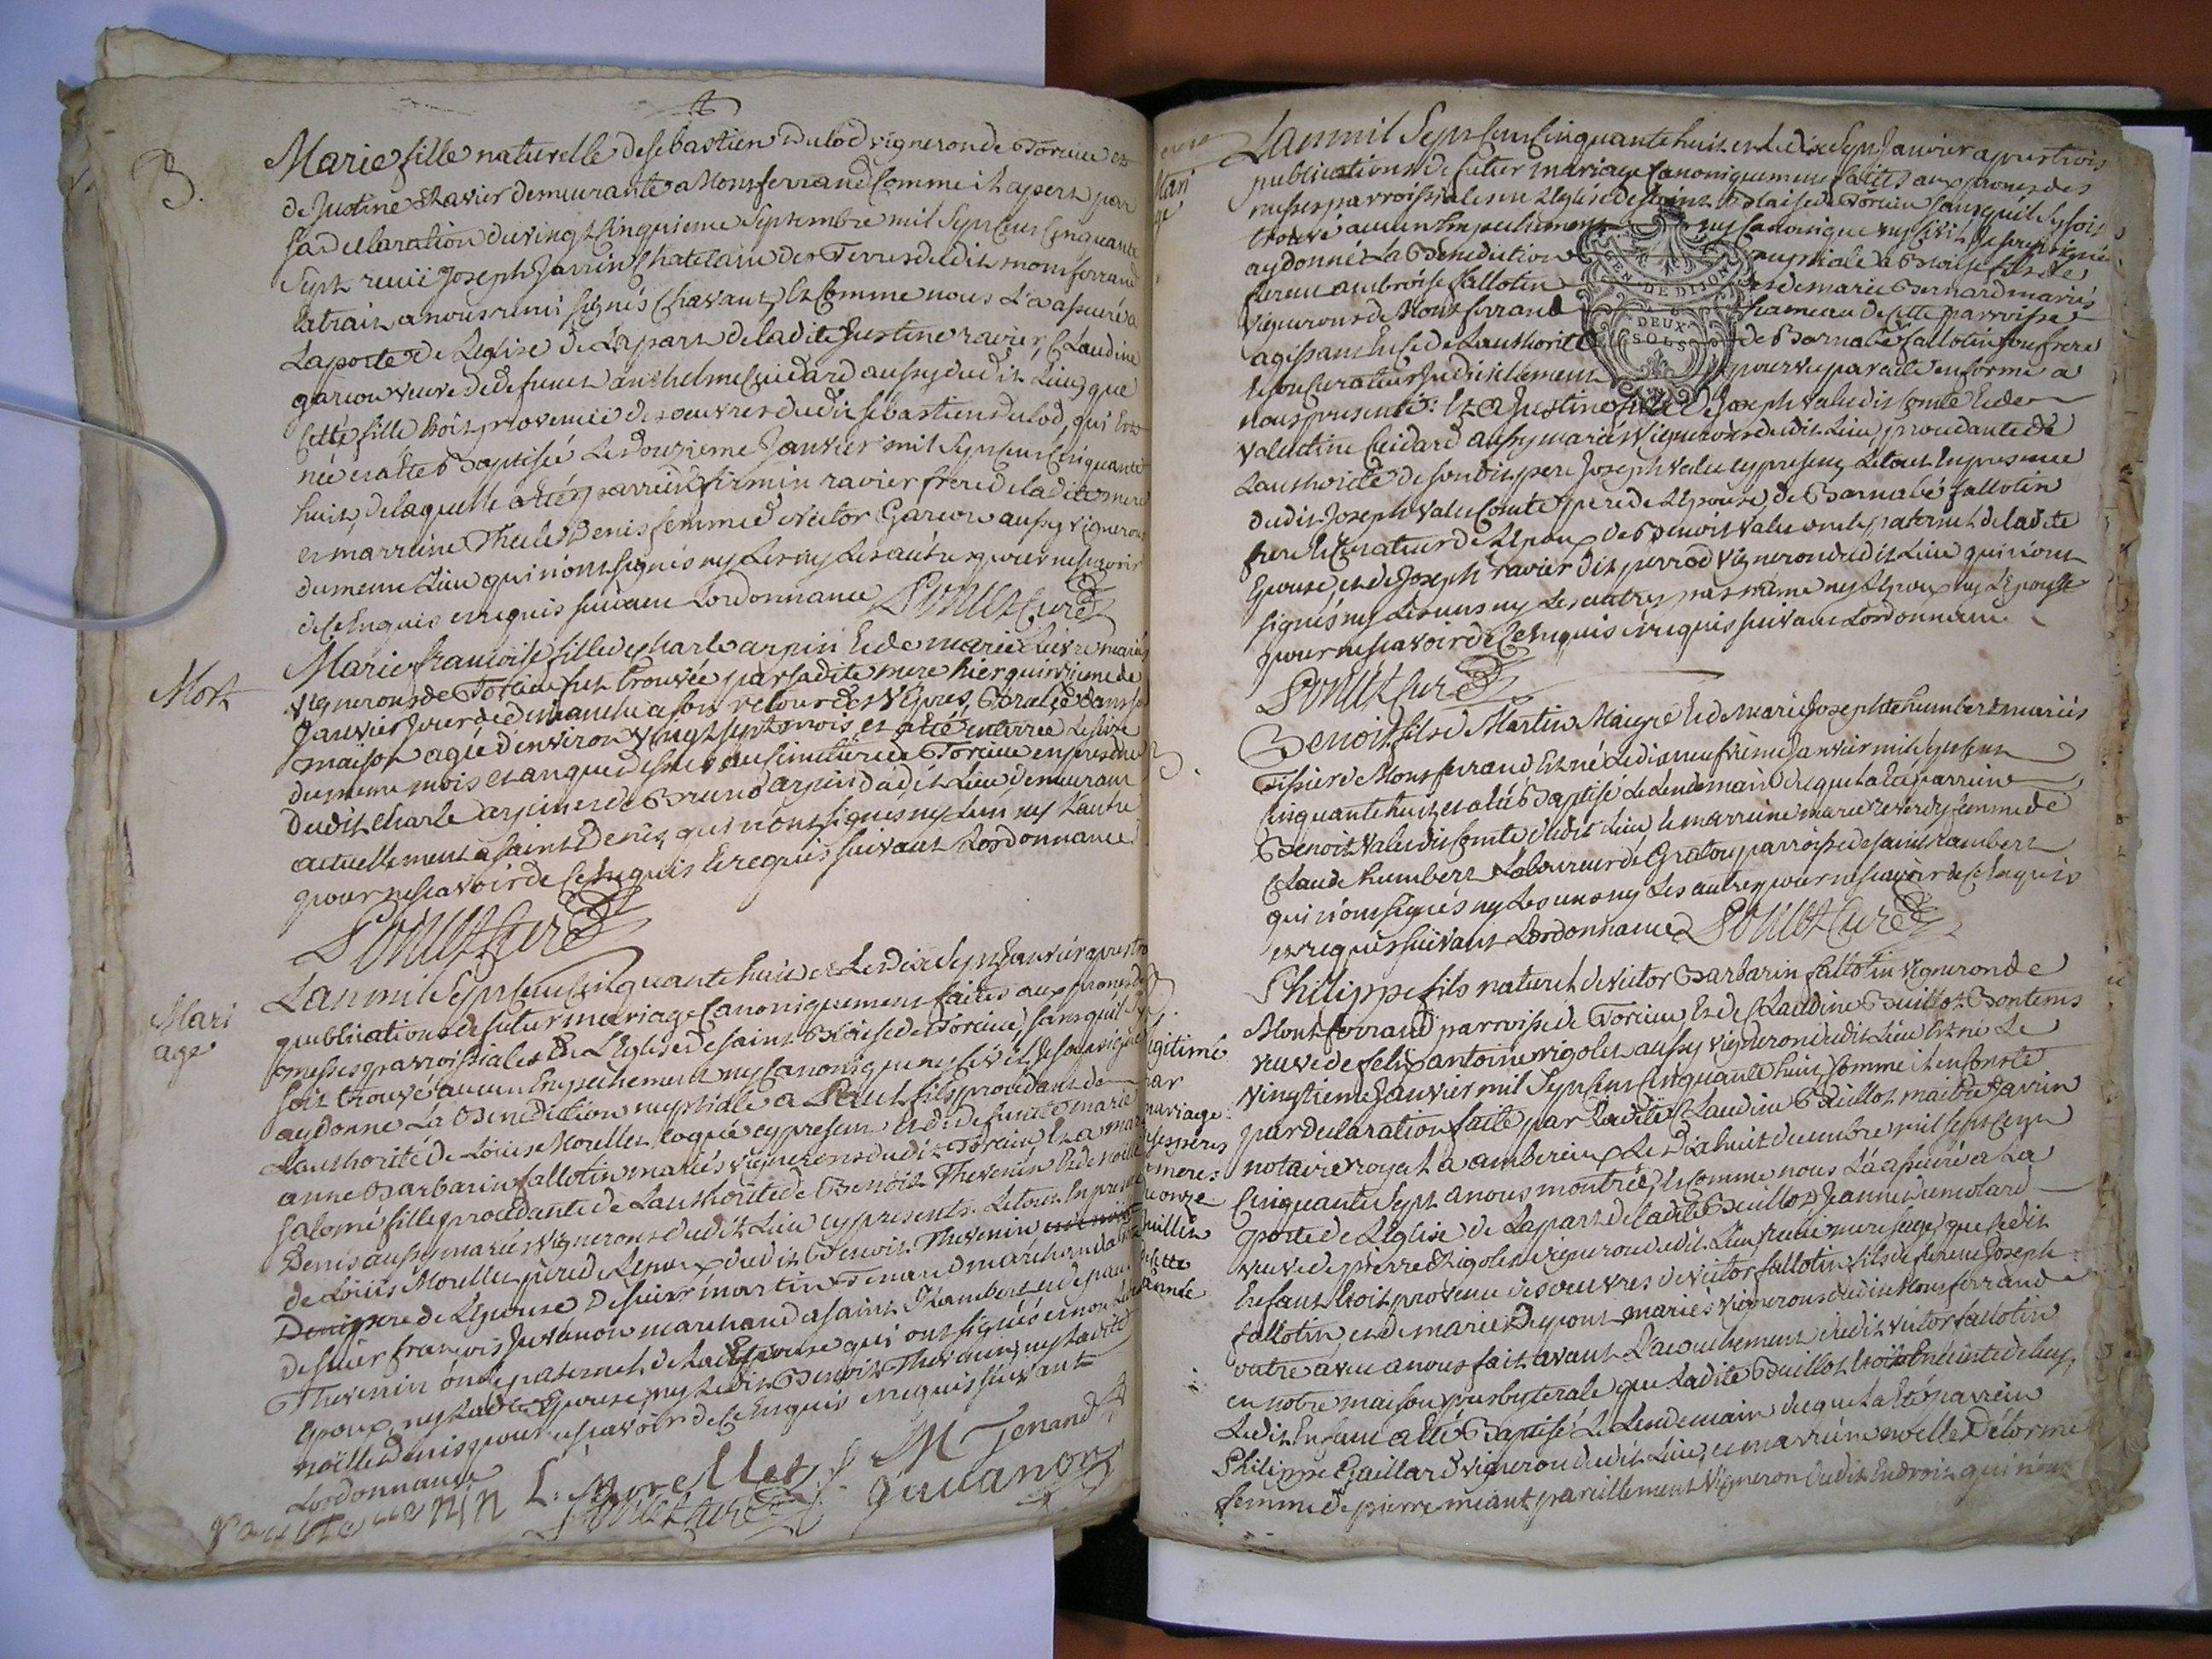 B.
Marie fille naturelle de sebastien Dulod vigneron de Torcieu et
de Justine Ravier demeurante a Montferrand Comme il apert par
sa declaration du vingt Cinquieme Septembre mil Sept Cens Cinquante
Sept reçuë Joseph Chatelain des Terres dudit montferrand
Lextrait a nous remis signés Chavant, Et Comme nous L'a assuré a
La porte de L'eglise de La part de ladite Justine ravier, Claudine
garcon veuve de defunct anthelme Cuidard aussy dudit Lieu, que
Cette fille Etoit provenuë des oeuvres dudit sebastien Dulod, qui Est
née et a été Baptisée Le douzieme Janvier mil Sept cens Cinquante
huit, de laquelle a été parrein firmin ravier frere de ladite mere
et marreine Thecle Denis femme de victor Garcon aussy vigneron
du meme Lieu qui n'ont signés ny Les uns ny Les autres pour ne sçavoir
de ce Enquis et requis suivant Lordonnance Curé
Mort
Marie francoise fille de charle arpin Et de marie Lievre mariés
vignerons de Torcieu fut trouvée par sadite mere hier quinzieme de
Janvier Jour de dimanche a son retour des Vêpres, dans sa
maison agée d'environ vingt sept mois et a été enterrée Le seize
du meme mois et an que dessus au Cimetiere de Torcieu en presence
dudit Charle arpin et de Bruno arpin dudit Lieu demeurant
actuellement a saint Denis, qui n'ont signés ny Lun ny Lautre
pour ne scavoir de Ce Enquis Et requis suivant Lordonnance
Curé
Mari
age
L'an mil Sept Cens Cinquante huit et Le dix Sept Janvier apres trois
publications de futur mariage Canoniquement faites aux prones des
messes parroissiales En L'Eglise de saint Blaise de Torcieu, sans qu'il s'y
soit trouvé aucun Empechement ny Canonique ny Civil, Je soussigné
ay donné La Benediction nuptiale a Paul fils procedant de
L'authorité de Loüis Morellet cy present Et de defunte marie
anne Barbarin fallotin mariés vignerons dudit Torcieu Et a marie
salomé fille procedante de L'authorité de Benoit Thevenin Et de noëlle
Denis aussy mariés vignerons dudit Lieu cy presents. Le tout En presence
de Loüis Morellet pere de L'epoux dudit Benoit Thevenin
pere de L'Epouse De sieur martin Tenand marchand a
de sieur françois Juvanon marchand a saint Rambert et de paul
Thevenin oncle paternel de ladite Epouse qui ont signés et non Ledit
Epoux, ny Ladite Epouse, ny Ledit Benoit Thevenin, ny Ladite
noëlle Denis pour ne sçavoir de Ce Enquis et requis suivant
Lordonnance
L: Morellet M Tenand
Paul tevenin Curé guvanon
Mari
age
L'an mil Sept Cens Cinquante huit et Le dix Sept Janvier apres trois
publications de futur mariage Canoniquement faites aux prones des
messes parroissiales en L'Eglise de saint Blaise de Torcieu sans qu'il s'y soit
trouvé aucun Empechement ny Canonique ny Civil, Je soussigné
ay donné La Benediction nuptiale a Blaise fils de
feu ambroise fallotin et de marie Bernard mariés
vignerons de Montferrand hameau de Cette parroisse
agissant de L'authorité de Barnabé fallotin son frere
Et son Curateur Judiciellement pourvu par acte en forme a
nous presenté: Et a Justine fille de Joseph valu dit Comte Et de
Valentine Cuidard aussy mariés Vignerons dudit Lieu, procedante de
L'authorité de sondit pere Joseph valu cy present, Le tout En presence
dudit Joseph Valu Comte pere de L'epouse, de Barnabé fallotin
frere Et Curateur de L'epoux de Benoit Valu oncle paternel de ladite
Epouse, et de Joseph ravier dit perrod vigneron dudit Lieu qui n'ont
signés ny Les uns ny Les autres pas meme ny L'epoux ny L'Epouse
pour ne scavoir de Ce Enquis et requis suivant Lordonnance.
Curé
GEN. DE DIJON
DEUX
SOLS
B.
Benoit fils de Martin Maigre Et de marie Josephte humbert mariés
Tissier de Montferrand Est né Le dix neufvieme Janvier mil Sept cens
Cinquante huit et a été Baptisé Le Lendemain duquel a été parrein
Benoit Valu dit Comte dudit Lieu, Et marreine marie reverdy femme de
Claude humbert Laboureur de Gratoux parroisse de saint rambert
qui n'ont signés ny Les uns ny Les autres pour ne sçavoir de Ce Enquis
et requis suivant Lordonnance Curé
B.
Legitimé
par
mariage
Philippe fils naturel de victor Barbarin fallotin vigneron de
Montferrand parroisse de Torcieu Et de Claudine Buillot Bontems
veuve de felix antoine rigolet aussy vigneron dudit Lieu Est né Le
vingtieme Janvier mil Sept Cens Cinquante huit, Comme il en Conste
par declaration faite par Ladite Claudine Buillot maitre
notaire royal a amberieux Le Dix huit decembre mil sept Cens
Cinquante Sept a nous montrée, Et Comme nous L'a assuré a La
porte de L'Eglise de La part de ladite Buillot, Jeanne Dumolard
veuve de pierre Rigolet vigneron dudit Lieu mere sage, que ledit
Enfant Etoit provenu des oeuvres de victor fallotin fils de feu Joseph
fallotin et de marie Dupont mariés vignerons dudit Montferrand
outre aveu a nous fait avant L'acouchement dudit victor fallotin
en notre maison presbyterale que Ladite Buillot Etoit Enceinte de luy,
Ledit Enfant a été Baptisé Le Lendemain duquel a été parrein
Philippe Gaillard vigneron dudit Lieu, et marreine noelle Delorme
femme de pierre miant pareillement Vigneron dudit Endroit qui n'ont